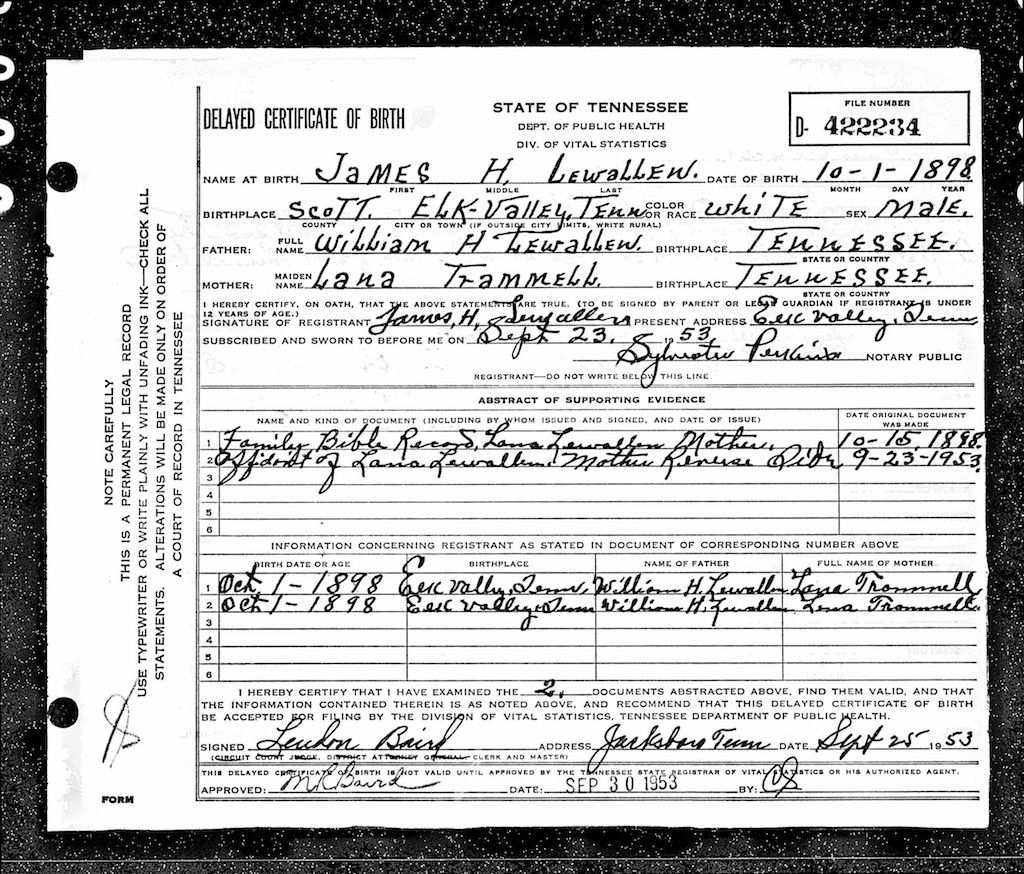 DELAYED CERTIFICATE OF BIRTH
STATE OF TENNESSEE
DEPT. OF PUBLIC HEALTH
DIV. OF VITAL STATISTICS
FILE NUMBER
D- 422234
NAME AT BIRTH JAMES H. LEWALLEN. DATE OF BIRTH 10-1-1898
FIRST MIDDLE LAST MONTH DAY YEAR
BIRTHPLACE SCOTT. ELK-VALLEY, TENN COLOR OR RACE WHITE SEX MALE.
COUNTY CITY OR TOWN (IF OUTSIDE CITY LIMITS, WRITE RURAL)
FATHER: FULL NAME William H Lewallen. BIRTHPLACE TENNESSEE.
STATE OR COUNTRY
MOTHER: MAIDEN NAME LANA TRAMMELL. BIRTHPLACE TENNESSEE.
STATE OR COUNTRY
I HEREBY CERTIFY, ON OATH, THAT THE ABOVE STATEMENTS ARE TRUE. (TO BE SIGNED BY PARENT OR LEGAL GUARDIAN IF REGISTRANT IS UNDER
12 YEARS OF AGE.)
SIGNATURE OF REGISTRANT James, H, Lewallen PRESENT ADDRESS Elk Valley, Tenn
SUBSCRIBED AND SWORN TO BEFORE ME ON Sept 23. 1953
Sylvester Perkins NOTARY PUBLIC
REGISTRANT—DO NOT WRITE BELOW THIS LINE
ABSTRACT OF SUPPORTING EVIDENCE
NAME AND KIND OF DOCUMENT (INCLUDING BY WHOM ISSUED AND SIGNED, AND DATE OF ISSUE) DATE ORIGINAL DOCUMENT WAS MADE
1 Family Bible Record, Lana Lewallen Mother. 10-15, 1898
2 Affidavit of Lana Lewallen. Mother Reverse Side 9-23-1953.
3
4
5
6
INFORMATION CONCERNING REGISTRANT AS STATED IN DOCUMENT OF CORRESPONDING NUMBER ABOVE
BIRTH DATE OR AGE BIRTHPLACE NAME OF FATHER FULL NAME OF MOTHER
1 Oct, 1-1898 Elk Valley, Tenn. William H. Lewallen Lana Trammell
2 Oct 1-1898 Elk Valley, Tenn William H. Lewallen Lena Trammell.
3
4
5
6
I HEREBY CERTIFY THAT I HAVE EXAMINED THE 2. DOCUMENTS ABSTRACTED ABOVE, FIND THEM VALID, AND THAT
THE INFORMATION CONTAINED THEREIN IS AS NOTED ABOVE, AND RECOMMEND THAT THIS DELAYED CERTIFICATE OF BIRTH
BE ACCEPTED FOR FILING BY THE DIVISION OF VITAL STATISTICS, TENNESSEE DEPARTMENT OF PUBLIC HEALTH.
SIGNED Lendon Baird ADDRESS Jacksboro Tenn DATE Sept 25 1953
(CIRCUIT COURT JUDGE, DISTRICT ATTORNEY GENERAL, CLERK AND MASTER)
THIS DELAYED CERTIFICATE OF BIRTH IS NOT VALID UNTIL APPROVED BY THE TENNESSEE STATE REGISTRAR OF VITAL STATISTICS OR HIS AUTHORIZED AGENT.
APPROVED: DATE: SEP 30 1953 BY:
NOTE CAREFULLY
THIS IS A PERMANENT LEGAL RECORD
USE TYPEWRITER OR WRITE PLAINLY WITH UNFADING INK—CHECK ALL
STATEMENTS. ALTERATIONS WILL BE MADE ONLY ON ORDER OF
A COURT OF RECORD IN TENNESSEE
FORM